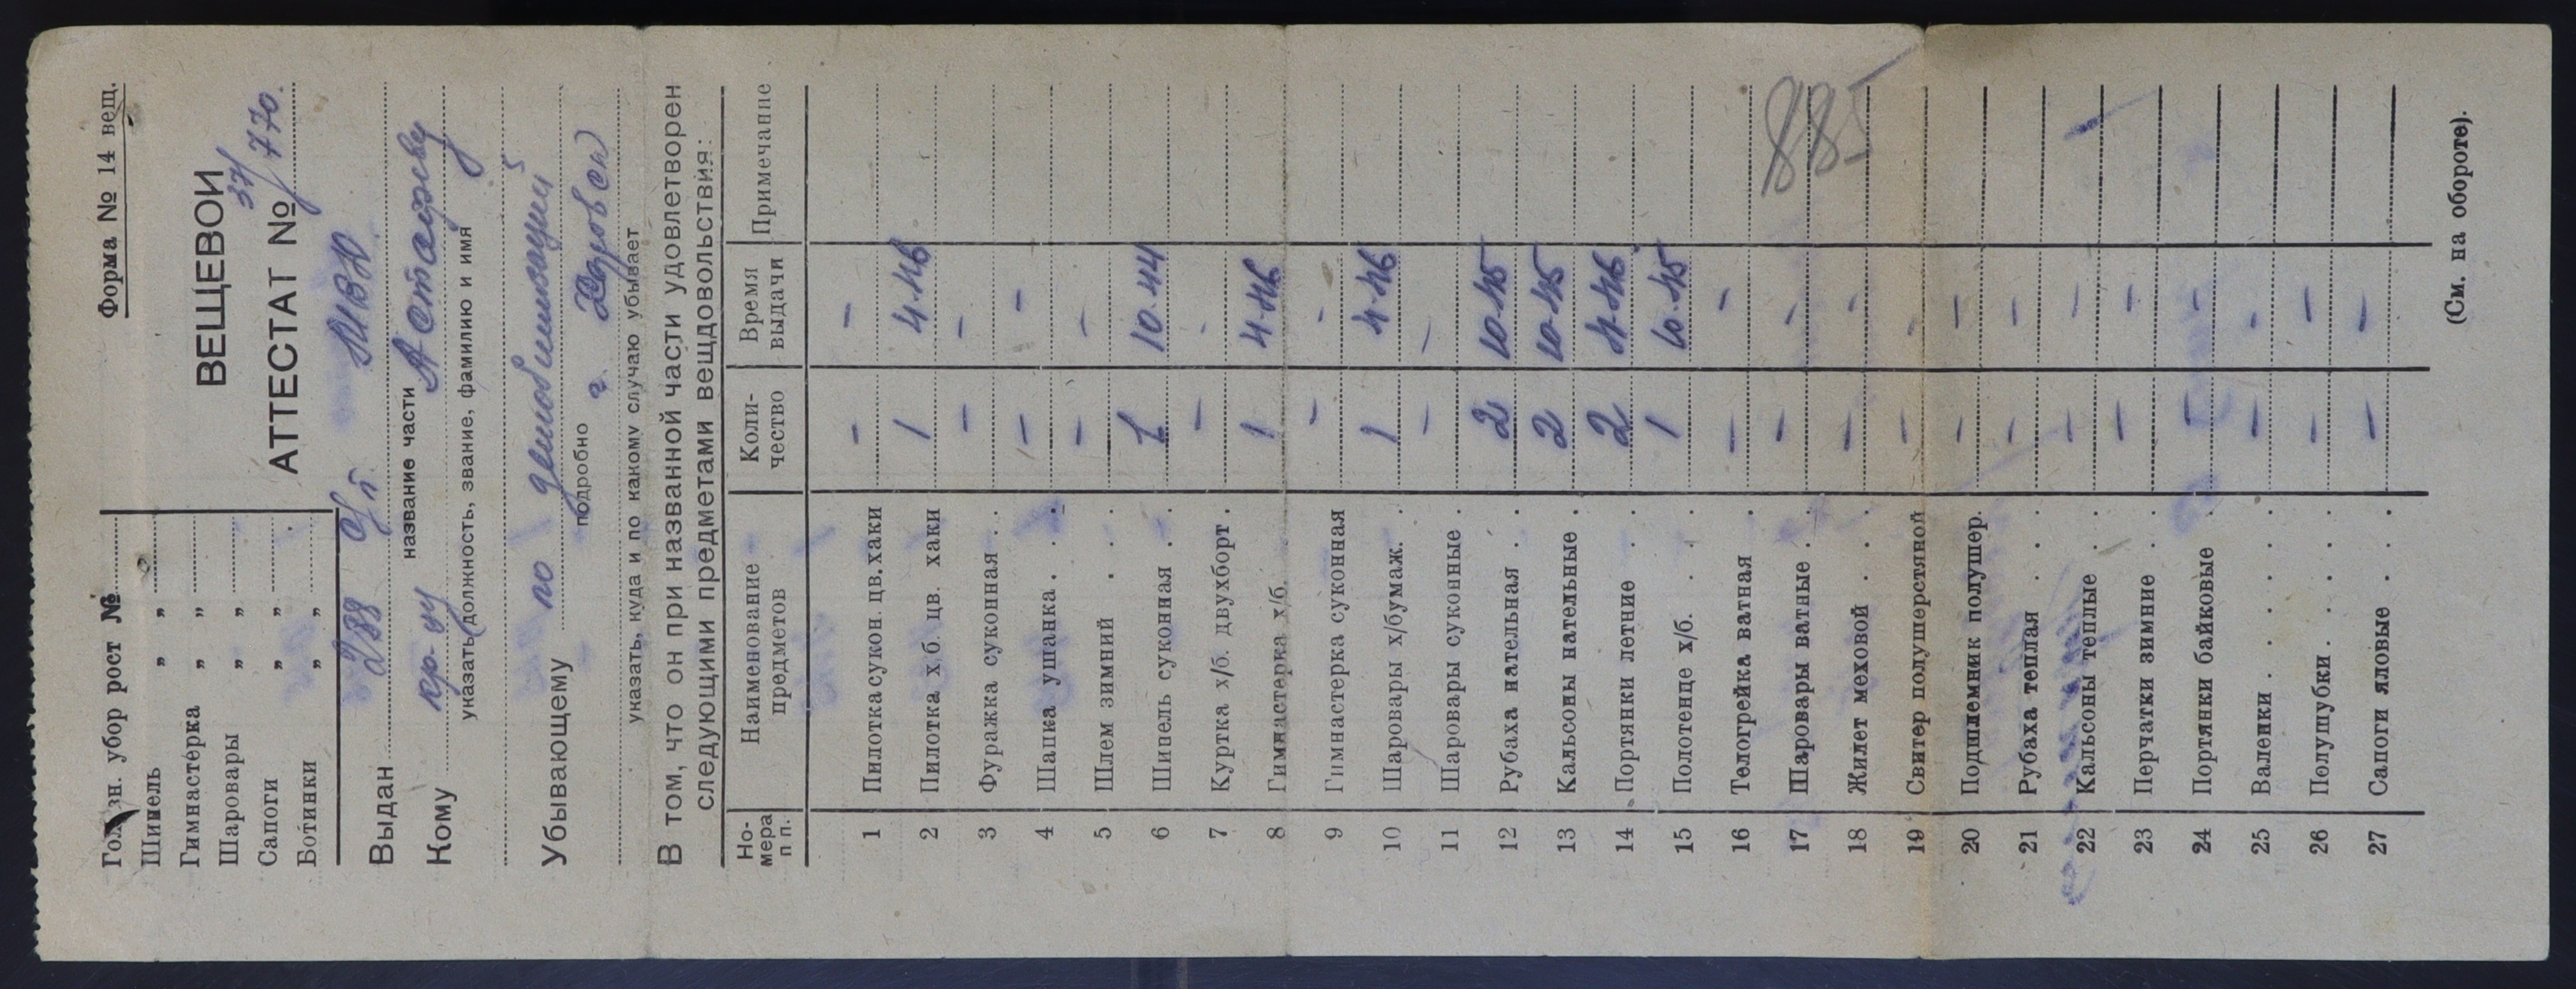 Форма № 14 вещ.
Головн. убор рост №
Шинель " "
Гимнастёрка " "
Шаровары " "
Сапоги " "
Ботинки " "
ВЕЩЕВОЙ
АТТЕСТАТ № 37/770.
Выдан 288 с/п
название части
Кому кр-цу Астафьеву
указать должность, звание, фамилию и имя
Убывающему по демобилизации
подробно
г.
указать, куда и по какому случаю убывает
В том, что он при названной части удовлетворен
следующими предметами вещдовольствия:
Но-мера п п. Наименование предметов Коли-чество Время выдачи Примечание
1 Пилотка сукон. цв. хаки - -
2 Пилотка х.б. цв. хаки 1 4.46
3 Фуражка суконная . . - -
4 Шапка ушанка . . . - -
5 Шлем зимний . . . - -
6 Шинель суконная . . 1 10.44
7 Куртка х/б. двухборт . - -
8 Гимнастерка х/б. 1 4.46
9 Гимнастерка суконная - -
10 Шаровары х/бумаж. . 1 4.46
11 Шаровары суконные . - -
12 Рубаха нательная . . 2 10.45
13 Кальсоны нательные . 2 10.45
14 Портянки летние . . 2 4.46
15 Полотенце х/б. . . . 1 10.45
16 Телогрейка ватная . - -
17 Шаровары ватные . . - -
885
18 Жилет меховой . . . - -
19 Свитер полушерстяной - -
20 Подшлемник полушер. - -
21 Рубаха теплая . . . - -
22 Кальсоны теплые . . - -
23 Перчатки зимние . . - -
24 Портянки байковые . - -
25 Валенки . . . . . - -
26 Полушубки . . . . - -
27 Сапоги яловые . . . - -
(См. на обороте).